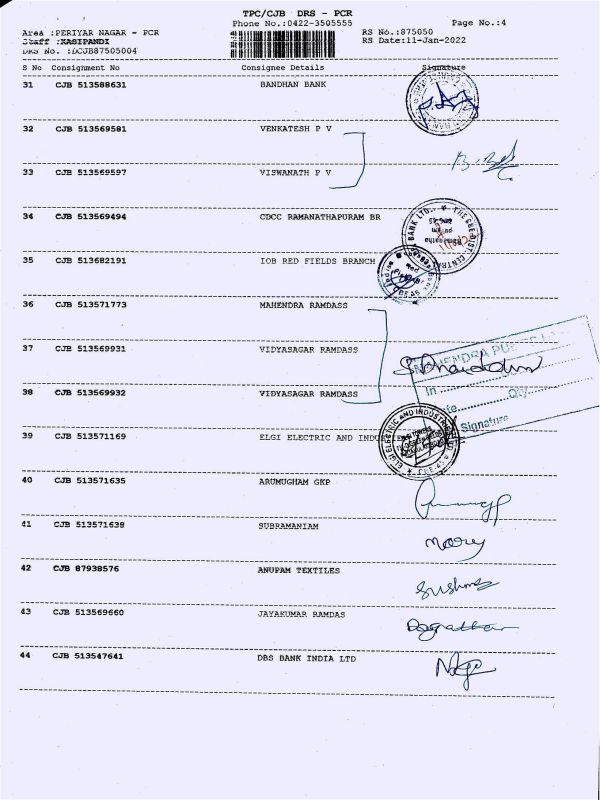 TPC/CJB DRS - PCR
Phone No.:0422-3505555 Page No.:4
Area :PERIYAR NAGAR - PCR RS No.:875050
Staff :KASIPANDI RS Date:11-Jan-2022
DRS No. :DCJB87505004
S No Consignment No Consignee Details Signature
31 CJB 513588631 BANDHAN BANK
32 CJB 513569581 VENKATESH P V
33 CJB 513569597 VISWANATH P V
34 CJB 513569494 CDCC RAMANATHAPURAM BR
BANK LTD. THE CBE. DIST. CENTRAL
35 CJB 513682191 IOB RED FIELDS BRANCH
36 CJB 513571773 MAHENDRA RAMDASS
37 CJB 513569931 VIDYASAGAR RAMDASS
MAHENDRA
In
City
38 CJB 513569932 VIDYASAGAR RAMDASS
Signature
39 CJB 513571169 ELGI ELECTRIC AND INDUSTRIES
ELGI ELECTRIC AND INDUSTRIES LTD
40 CJB 513571635 ARUMUGHAM GKP
41 CJB 513571638 SUBRAMANIAM
Mary
42 CJB 87938576 ANUPAM TEXTILES
Sushma
43 CJB 513569660 JAYAKUMAR RAMDAS
44 CJB 513547641 DBS BANK INDIA LTD